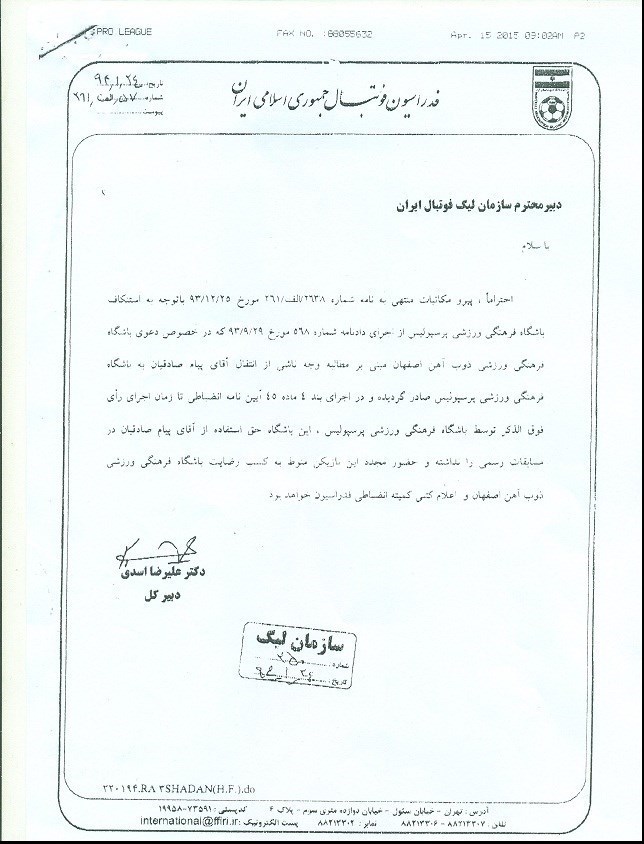 PRO LEAGUE FAX NO. :88055632 Apr. 15 2015 09:02AM P2
فدراسیون فوتبال جمهوری اسلامی ایران
تاریخ: ۹۴٫۱٫۲۴
شماره:
پیوست:
دبیر محترم سازمان لیگ فوتبال ایران
با سلام
احتراماً ، پیرو مکاتبات منتهی به نامه شماره ۲۶۳۸/الف/۲۶۱ مورخ ۹۳/۱۲/۲۵ باتوجه به استنکاف
باشگاه فرهنگی ورزشی پرسپولیس از اجرای دادنامه شماره ۵۶۸ مورخ ۹۳/۹/۲۹ که در خصوص دعوی باشگاه
فرهنگی ورزشی ذوب آهن اصفهان مبنی بر مطالبه وجه ناشی از انتقال آقای پیام صادقیان به باشگاه
فرهنگی ورزشی پرسپولیس صادر گردیده و در اجرای بند ٤ ماده ٤٥ آیین نامه انضباطی تا زمان اجرای رأی
فوق الذکر توسط باشگاه فرهنگی ورزشی پرسپولیس ، این باشگاه حق استفاده از آقای پیام صادقیان در
مسابقات رسمی را نداشته و حضور مجدد این بازیکن منوط به کسب رضایت باشگاه فرهنگی ورزشی
ذوب آهن اصفهان و اعلام کتبی کمیته انضباطی فدراسیون خواهد بود
دکتر علیرضا اسدی
دبیر کل
سازمان لیگ
شماره: ۲۵۰
تاریخ: ۹۴٫۱٫۲۴
۲۲۰۱۹۴.RA ۳SHADAN(H.F.).do
آدرس : تهران - خیابان سئول - خیابان دوازده متری سوم - پلاک ۴ کدپستی : ۷۳۵۹۱-۱۹۹۵۸
تلفن : ۸۸۲۱۳۳۰۷ - ۸۸۲۱۳۳۰۶ نمابر : ۸۸۲۱۳۳۰۲ پست الکترونیک : international@ffiri.ir